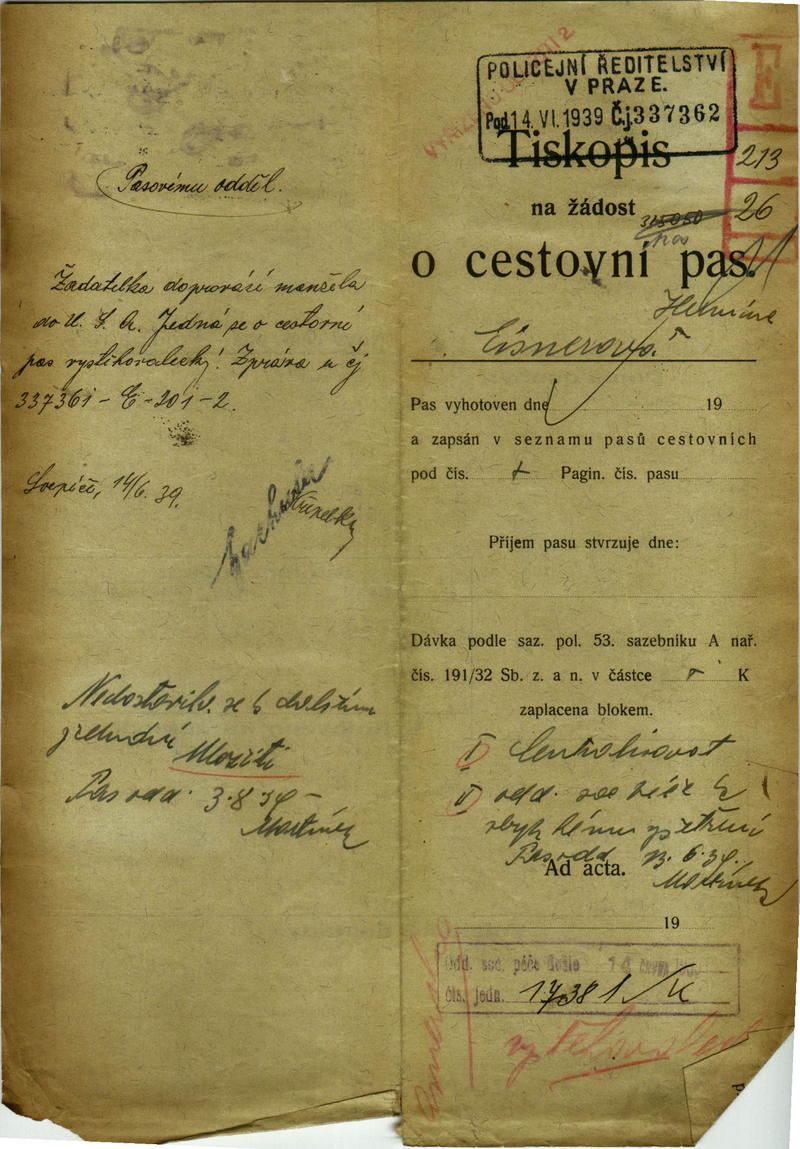 Pasovému odděl.
Žadatelka doprovází manžela
do U. S. A. Jedná se o cestovní
pas vystěhovalecký! Zpráva u čj
337361 - E - 201 - 2.
14/6. 39.
Nedostavila se k dalšímu
jednání
Pas. odd. 3. 8. 39 -
Martínek
POLICEJNÍ ŘEDITELSTVÍ
V PRAZE.
Pod. 14. VI. 1939 Č.j. 337362
E
213
26
Tiskopis
na žádost
315050
o cestovní pas.
Hermína
Eisnerová
Pas vyhotoven dne 19
a zapsán v seznamu pasů cestovních
pod čís. Pagin. čís. pasu
Příjem pasu stvrzuje dne:
Dávka podle saz. pol. 53. sazebníku A nař.
čís. 191/32 Sb. z. a n. v částce K
zaplacena blokem.
I) Centralisovat
II) odd. soc péče k
Pas. odd. 13. 6. 39.
Ad acta.
Martínek
19
Odd. soc. péče došlo 14. června
čís. jedn. 17381/K